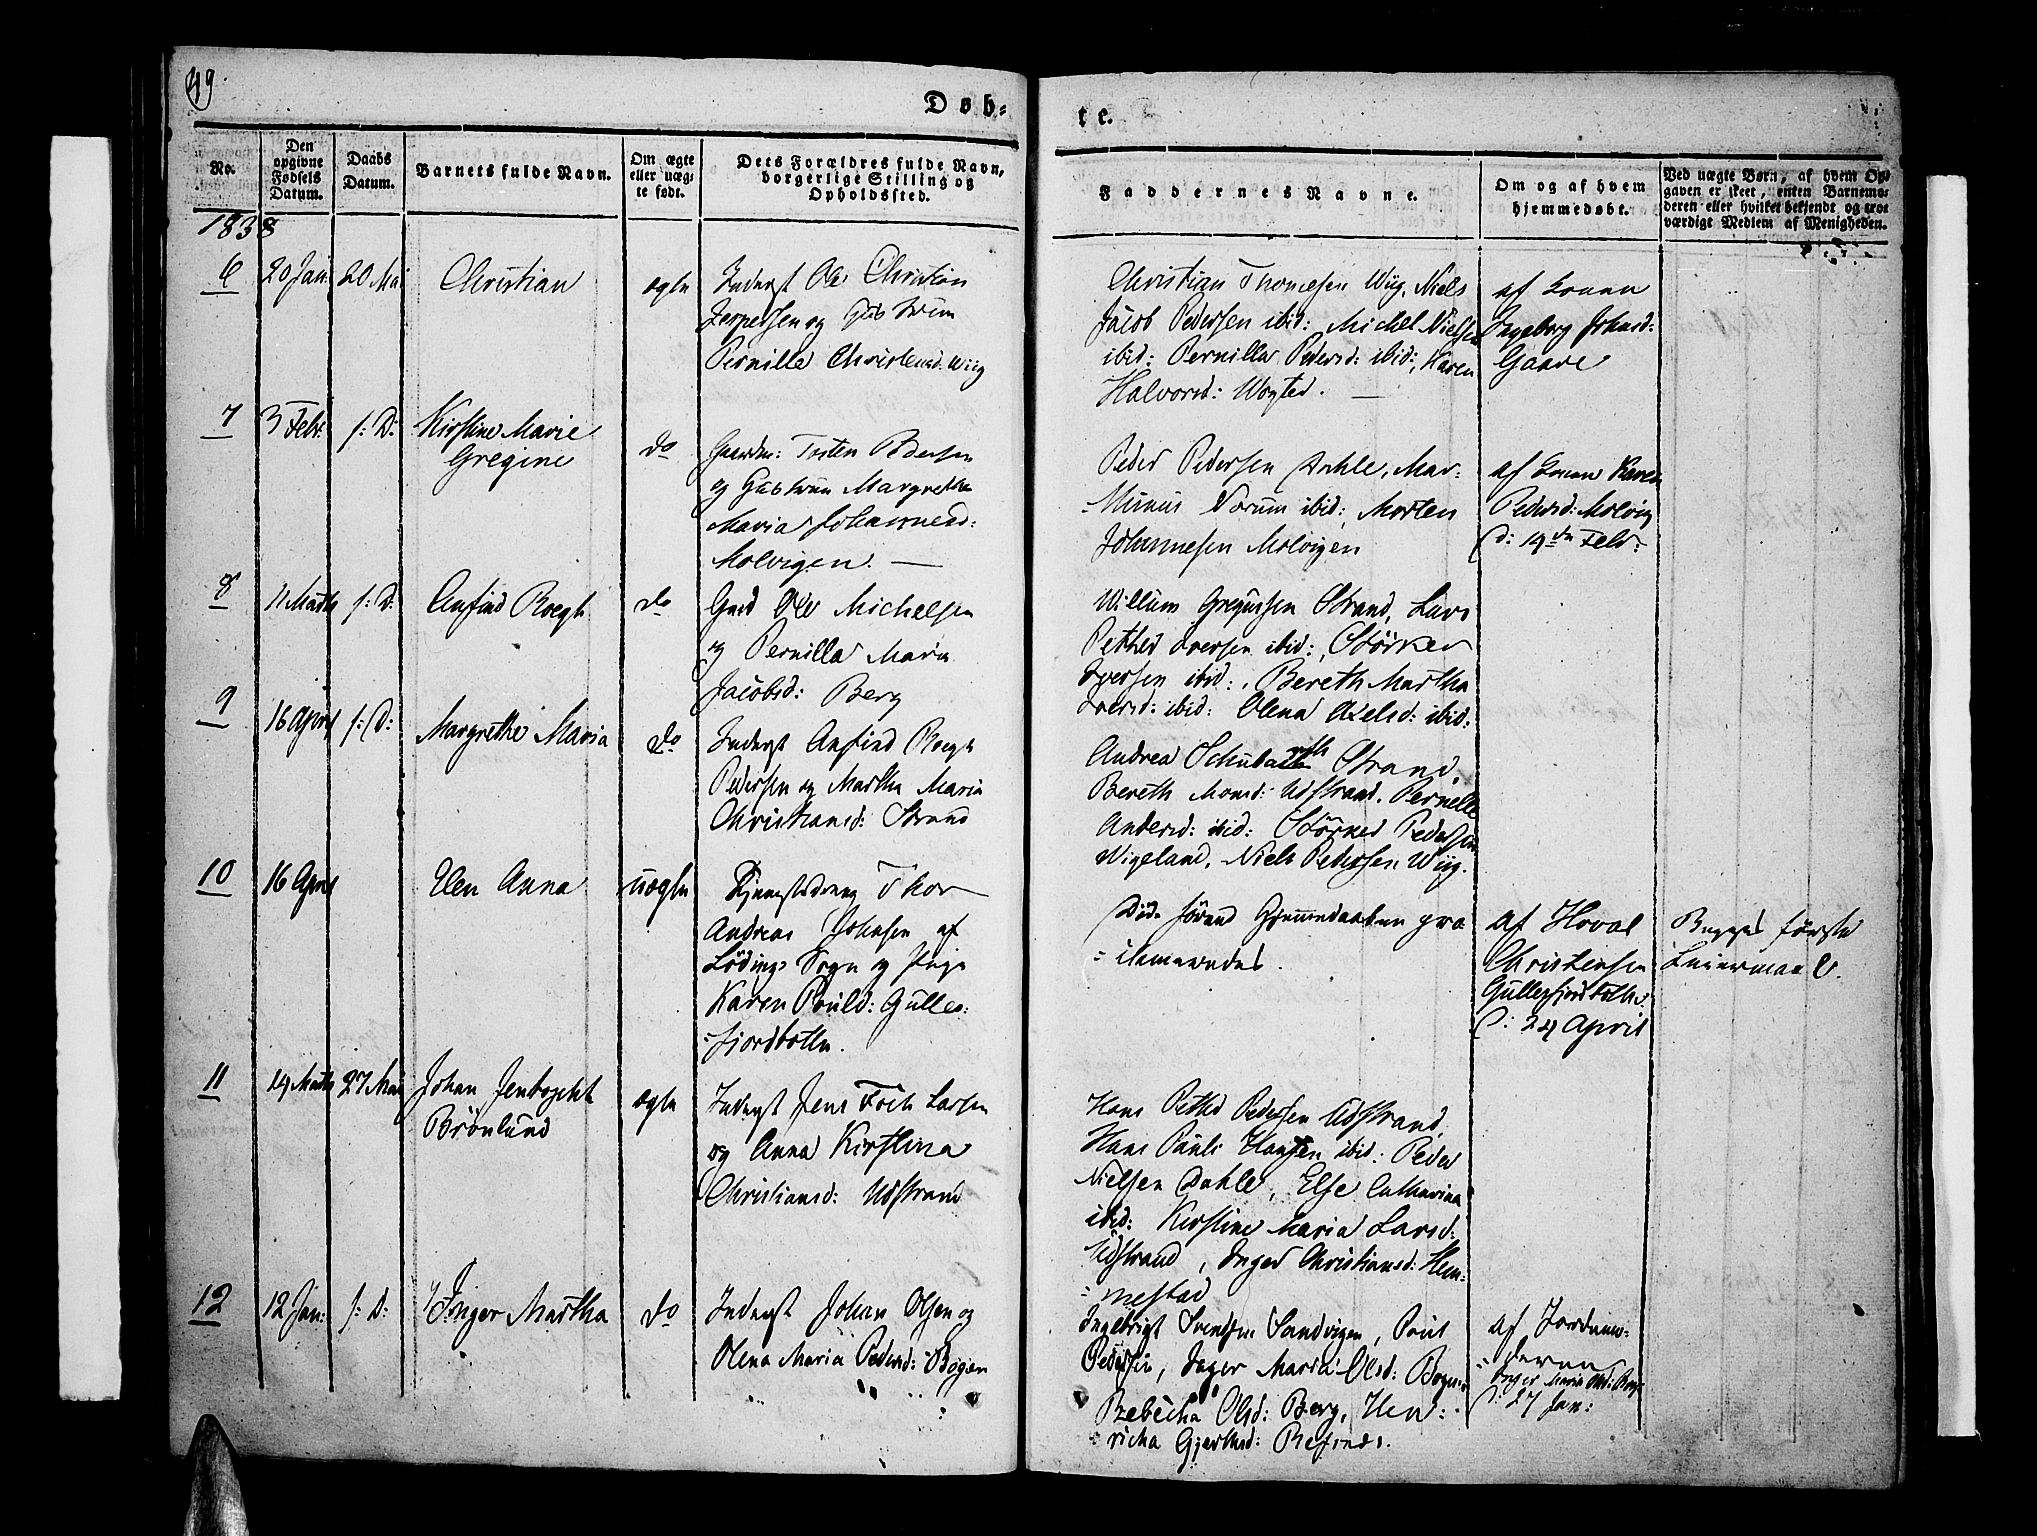 49
Døb=
te.
No.
Den opgivne Fødsels Datum.
Daabs Datum.
Barnets fulde Navn.
Om ægte eller uæg-
te født.
Dets Forældres fulde Navn,
borgerlige Stilling og
Opholdssted.
Faddernes Navne.
Om og af hvem
hjemmedøbt.
Ved uægte Børn, af hvem Op-
gaven er skeet, enten Barnemo-
deren eller hvilket bekjendt og tro-
værdigt Medlem af Menigheden.
1838
6
20 Jan:
20 Mai
Christian
ægte
Inderst Ole Christian
Jespersen og Hustrue
Pernille Christensd: Wiig
Christian Thomesen Wiig, Niels
Jacob Pedersen ibid: Michel Nielsen
ibid: Pernilla Pedersd: ibid:, Karen
Halvorsd: Wogted.
af Konen
Ingeborg Johnsd:
Gaare
7
3 Febr:
s: D:
Kirstine Marie
Gregine
do
Gaardm: Tosten Pedersen
og Hustrue Margrethe
Maria Johannesd:
Molvigen.
Peder Pedersen Dahle, Mar-
Morten
Johannesen Molvigen
af Konen Karen
Pedersd: Molvig
d: 19de Febr:
8
11 Marts
s: D:
Anfind Roegh
do
Gmd Ole Michelsen
og Pernilla Maria
Jacobsd: Berg
Willum Gregusen Strand, Lars
Pether Iversen ibid:, Størker
Iversen ibid:, Bereth Martha
Iversd: ibid: Olena Axelsd: ibid:
9
16 April
s: D:
Margrethe Maria
do
Inderst Anfind Roegh
Pedersen og Martha Maria
Christiansd: Strand
Andrea Schubarth Strand,
Bereth Monsd: Udstrand, Pernelle
Andersd: ibid: Størker Pedersen
Wigeland, Niels Pedersen Wiig.
10
16 April
Elen Anna
uægte
Tjenestedreng Thor
Andreas Johnsen af
Lødings Sogn og Pige
Karen Pould: Gulles-
fjordbotten.
Døde førend Hjemmedaaben pro-
af Hoval
Christensen
Gullesfjordbotten
d: 24 April
Begges første
Leiermaal.
11
14 Marts
27 Mai
Johan Jentoght
Brønlund
ægte
Inderst Jens Foch Larsen
og Anna Kirstina
Christiansd: Udstrand
Hans Pether Pedersen Udstrand,
Hans Pauli Hansen ibid: Peder
Nielsen Dahle, Else Catharina
ibid: Kirstine Maria Larsd:
Udstrand, Inger Christiansd: Hem-
mestad
12
12 Jan:
s: D:
Inger Martha
do
Inderst Johan Olsen og
Olena Maria Pedersd: Bogen
Ingebrigt Svendsen Sandvigen, Poul
Pedersen, Inger Maria Olsd: Bogen
Rebecha Olsd: Berg, Hen-
richa Gjerthsd: Refsnes.
af Jordemo-
deren
Inger Maria Olsd: Bog:
d: 27 Jan: